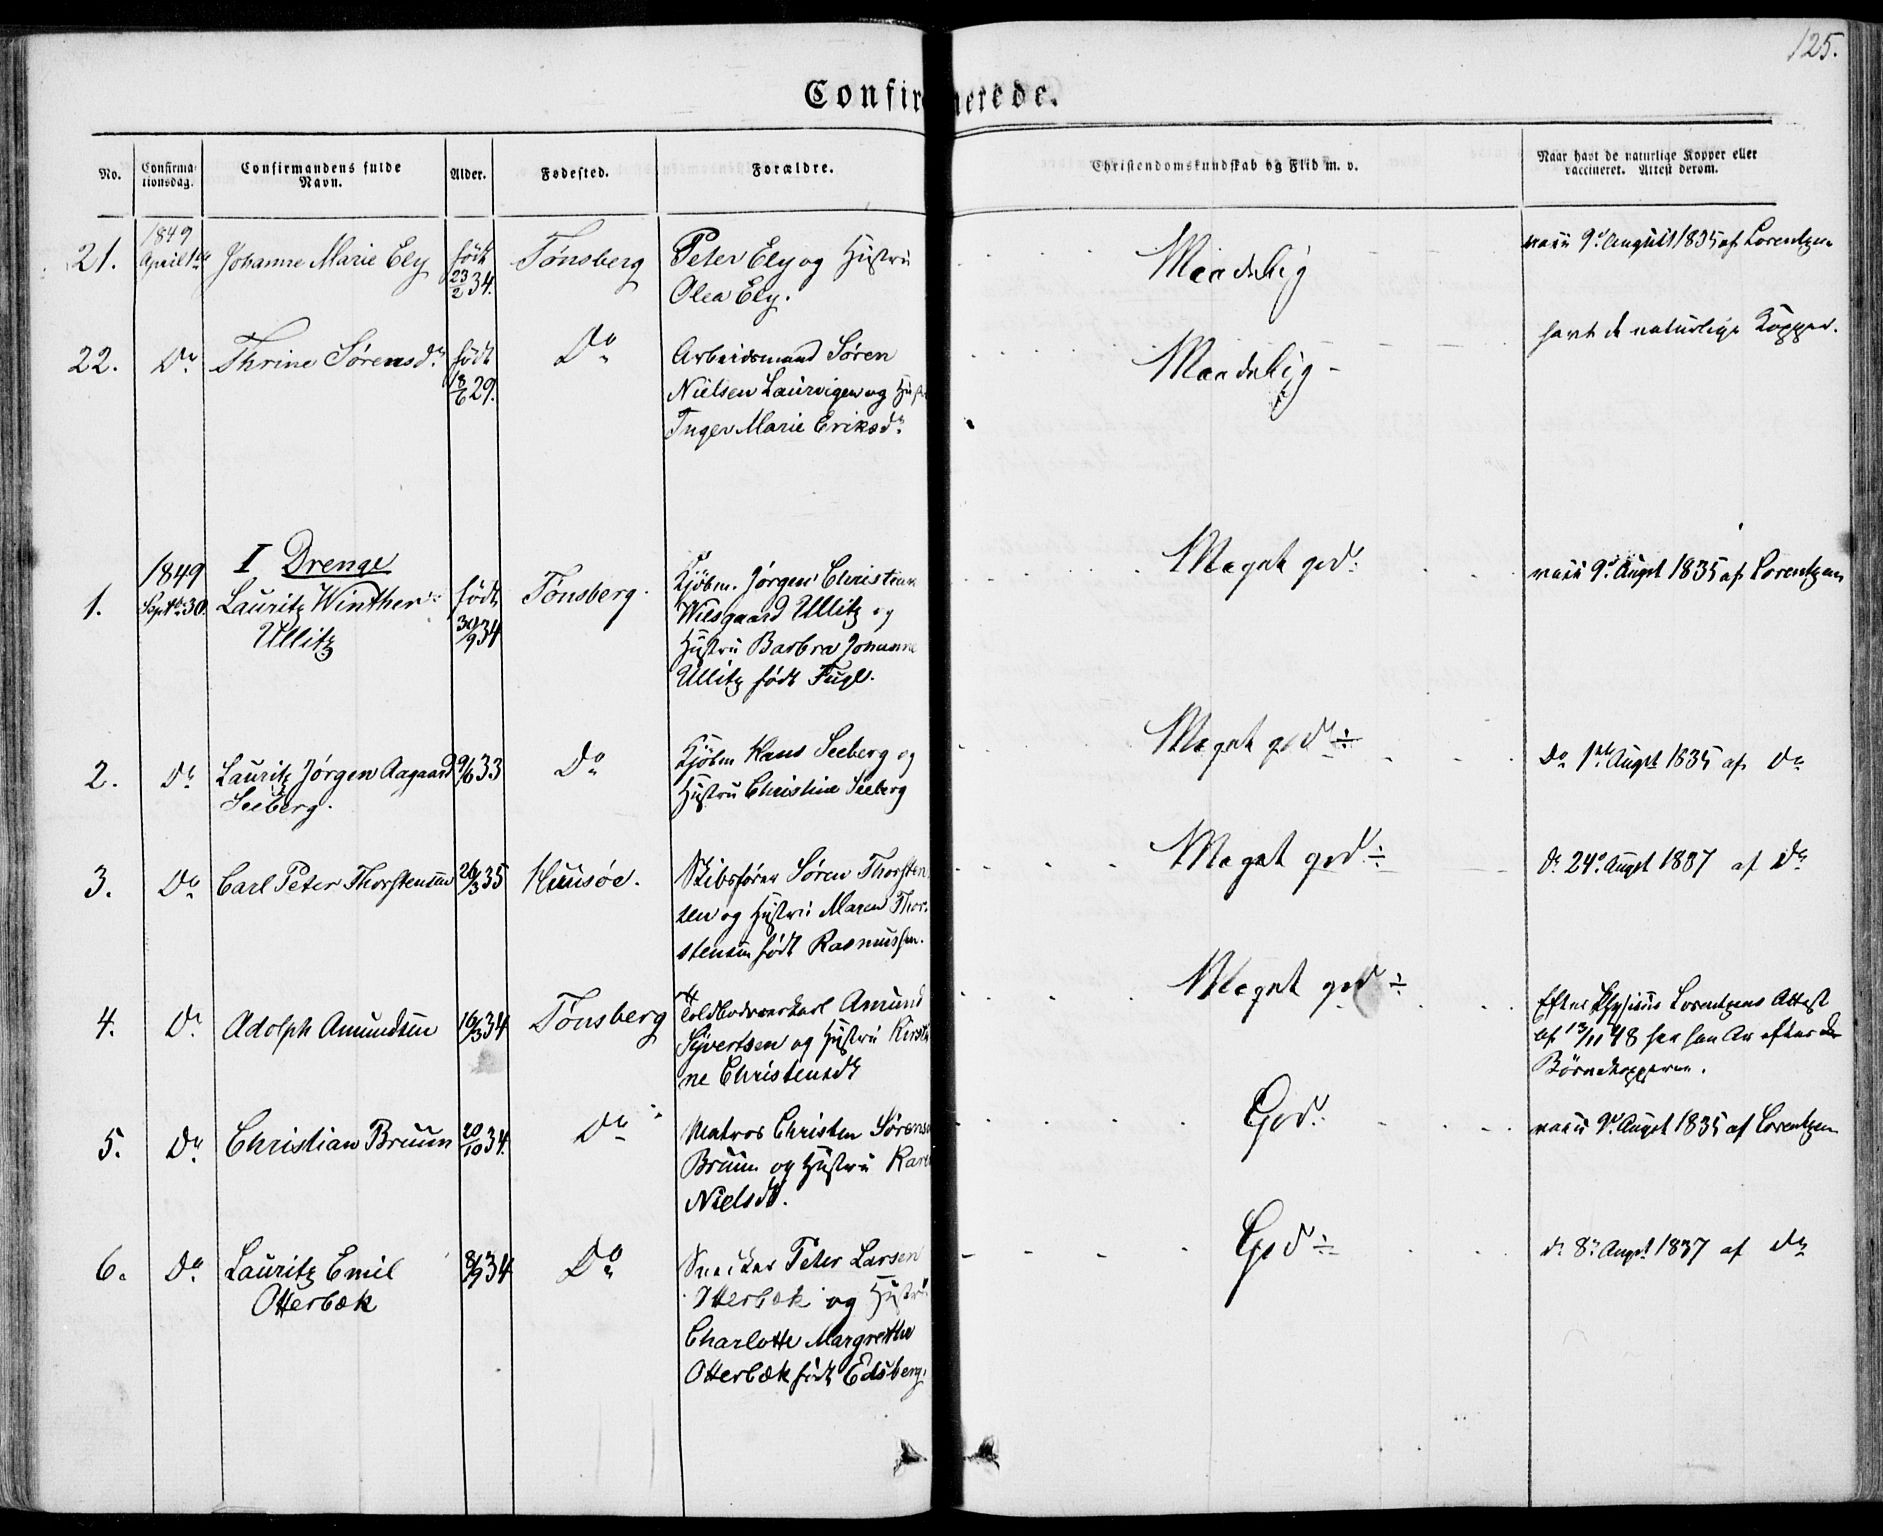 125.
Confirmerede.
No.
Confirma-
tionsdag.
Confirmandens fulde
Navn.
Alder.
Fødested.
Forældre.
Christendomskundskab og Flid m. v.
Naar havt de naturlige Kopper eller
vaccineret. Attest derom.
21.
1849
April 1ste
Johanne Marie Ely
født
23/2 34.
Tønsberg
Peter Ely og Hustru
Olea Ely.
Maadelig
vacc 9d August 1835 af Lorentzen
22.
Do
Thrine Sørensdr
født
18/6 29.
Do
Arbeidsmand Søren
Nielsen Laurvigen og Hust
Inger Marie Eriksdr
Maadelig -
havt de naturlige Kopper.
I Drenge
1.
1849
Septbr 30
Lauritz Winther
Ullitz
født
30/9 34
Tønsberg.
Kjøbm. Jørgen Christian
Wilsgaard Ullitz og
Hustru Barbra Johanne
Ullitz født Fugl.
Meget god.
vacc 9d Augst 1835 af Lorentzen
2.
Do
Lauritz Jørgen Aagaard
Seeberg.
9/6 33
Do
Kjøbm Hans Seeberg og
Hustru Christine Seeberg
Meget god ÷
Do 1ste Augst 1835 af Do
3.
Do
Carl Peter Thorstensen
26/3 35
Huusøe.
Skibsfører Søren Thorsten
sen og Hustru Maren Thor-
stensen født Rasmussen.
Meget god ÷
Do 24d Augst 1837 af Do
4.
Do
Adolph Amundsen
16/3 34
Tønsberg
Toldbodroerkarl Amund
Syvertsen og Hustru Kirsti
ne Christensdt
Meget god ÷
Efter Physicus Lorentzens Attest
af 13/11 48 har han Ar efter de
Børnekopperne.
5.
Do
Christian Bruun
20/10 34.
Do
Matros Christen Sørensen
Bruun og Hustru Karen
Nielsdt.
God.
vacc 9d Augst 1835 af Lorentzen
6.
Do
Lauritz Emil
Otterbæk
8/9 34
Do
Snecker Peter Larsen
Otterbæk og Hustru
Charlotte Margrethe
Otterbæk født Edsberg.
God ÷
do 8d Augst 1837 af Do